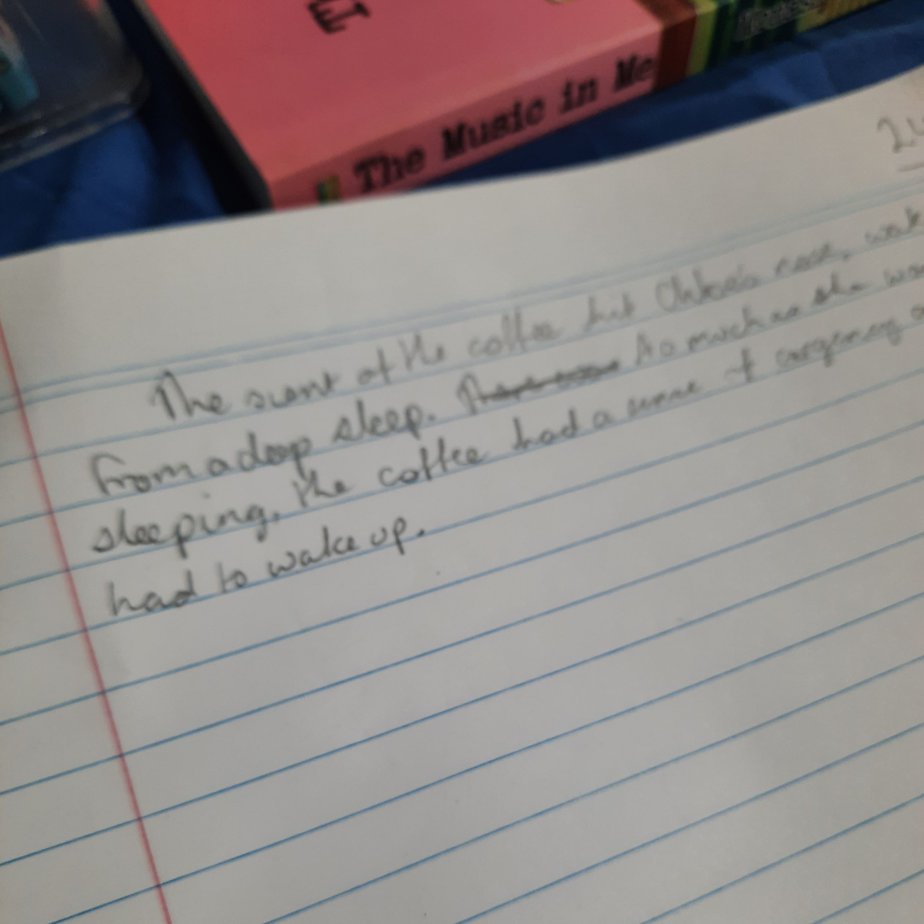 The Music in Me
The scent of the coffee hit nose,
from a deep sleep. As much as she
sleeping, the coffee had a sense of urgency
had to wake up.